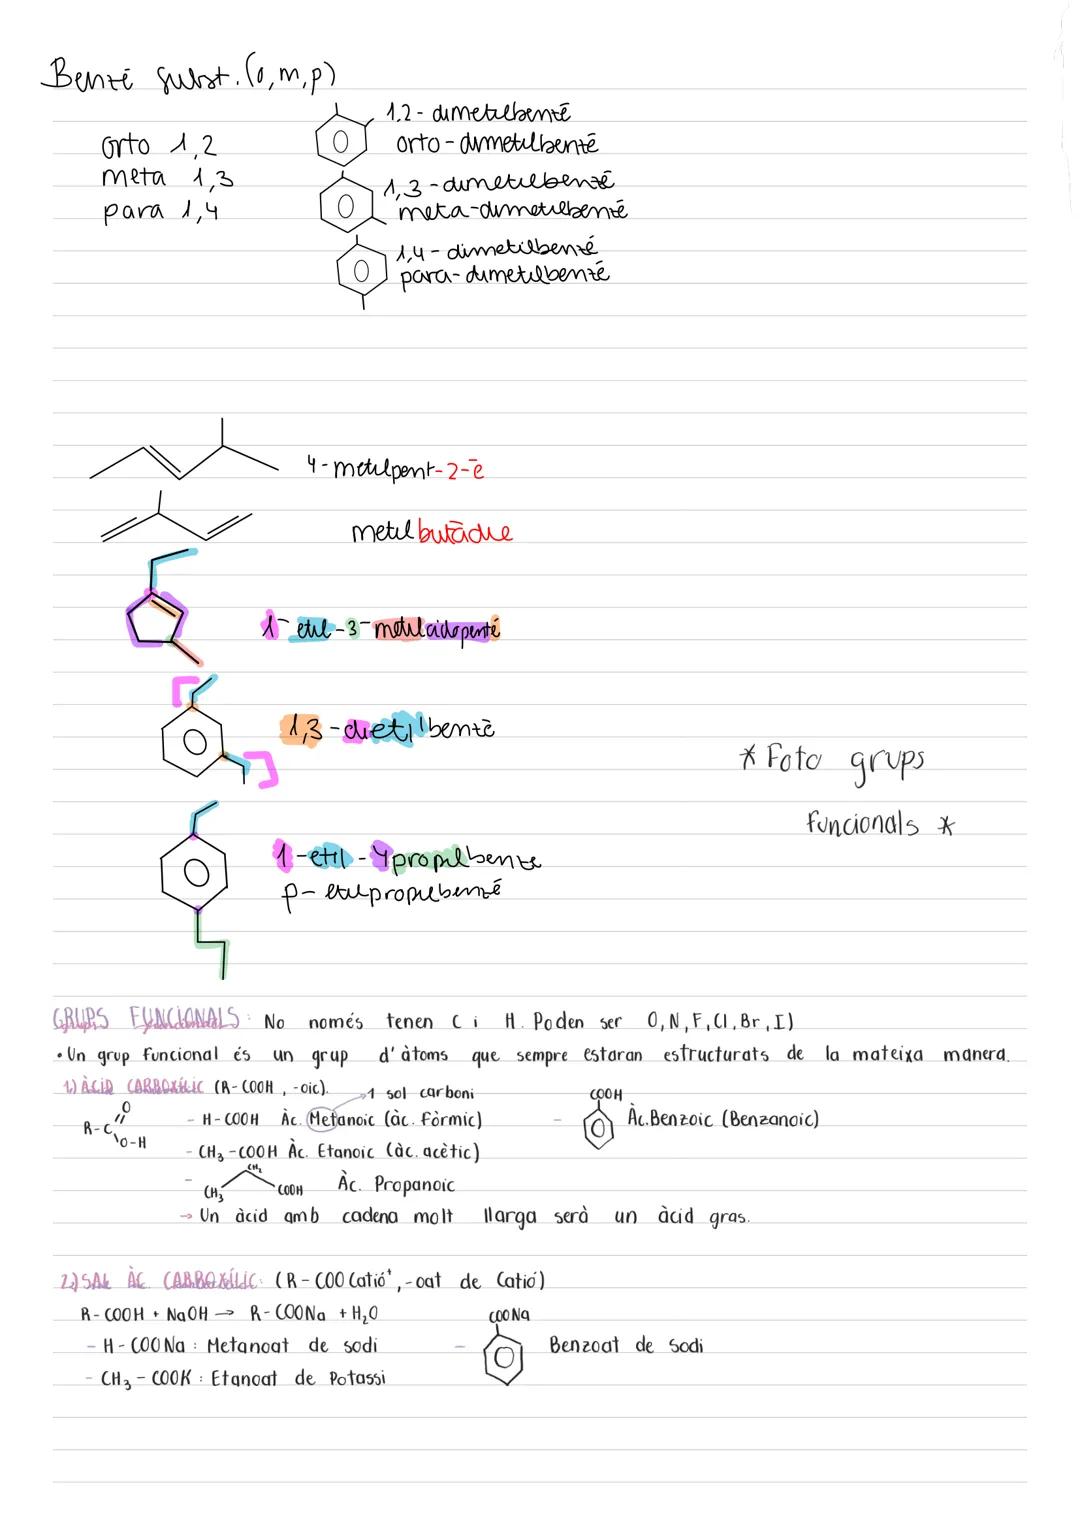 Benzè subst. (o,m,p)
orto 1,2
meta 1,3
para 1,4
1,2 - dimetilbenzē
orto - dimetilbenzē
1,3 - dimetilbenzē
meta-dimetilbenzē
1,4 - dimetilbenzé
para-dimetilbenzé
4-metilpent-2-ē
metilbutādie
1- etil-3-metilciclopenté
1,3-dietilbenzē
1-etil-4propilbenze
p- etilpropilbenzé
* Foto grups
funcionals *
GRUPS FUNCIONALS: No només tenen C i H. Poden ser O, N, F, Cl, Br, I)
• Un grup funcional és un grup d'àtoms que sempre estaran estructurats de la mateixa manera.
1) ÀCID CARBOXÍLIC (R-COOH, -oic).
1 sol carboni
R-C
O
O-H
- H-COOH Àc. Metanoic (àc. fòrmic)
- CH3-COOH Àc. Etanoic (àc. acètic)
- CH3 CH2 COOH Àc. Propanoic
→ Un àcid amb cadena molt llarga serà un àcid gras.
COOH
- Àc.Benzoic (Benzanoic)
2) SAL ÀC. CARBOXÍLIC: (R-COO Catió⁺, -oat de Catió)
R-COOH + NaOH → R-COONa + H₂O
- H-COONa : Metanoat de sodi
- CH3-COOK : Etanoat de Potassi
COONa
- Benzoat de sodi